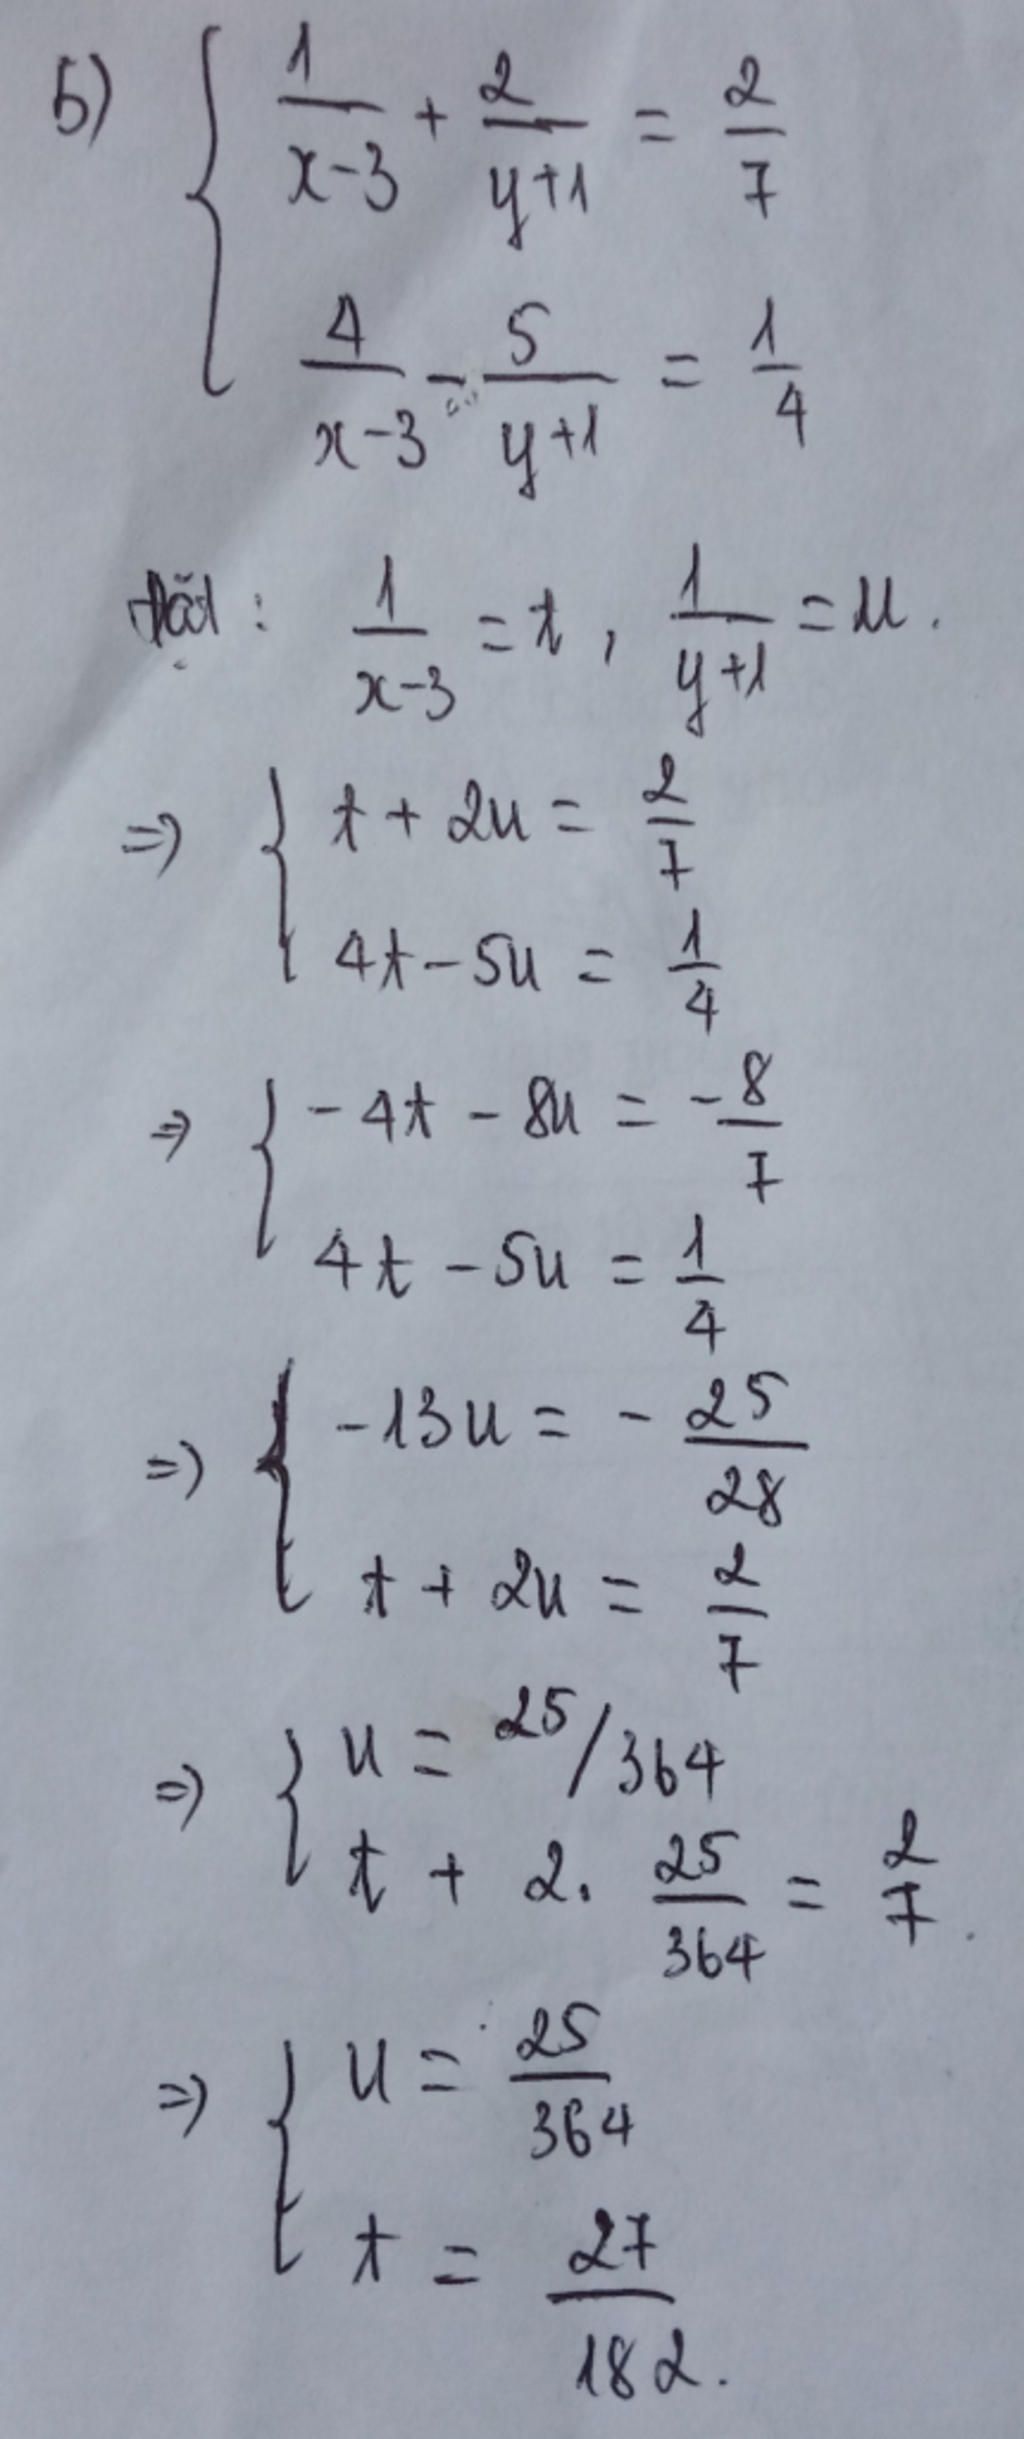 b) { 1/(x-3) + 2/(y+1) = 2/7
4/(x-3) - 5/(y+1) = 1/4
Đặt : 1/(x-3) = t , 1/(y+1) = u .
=> { t + 2u = 2/7
4t - 5u = 1/4
=> { -4t - 8u = -8/7
4t - 5u = 1/4
=> { -13u = - 25/28
t + 2u = 2/7
=> { u = 25/364
t + 2. 25/364 = 2/7 .
=> { u = 25/364
t = 27/182 .